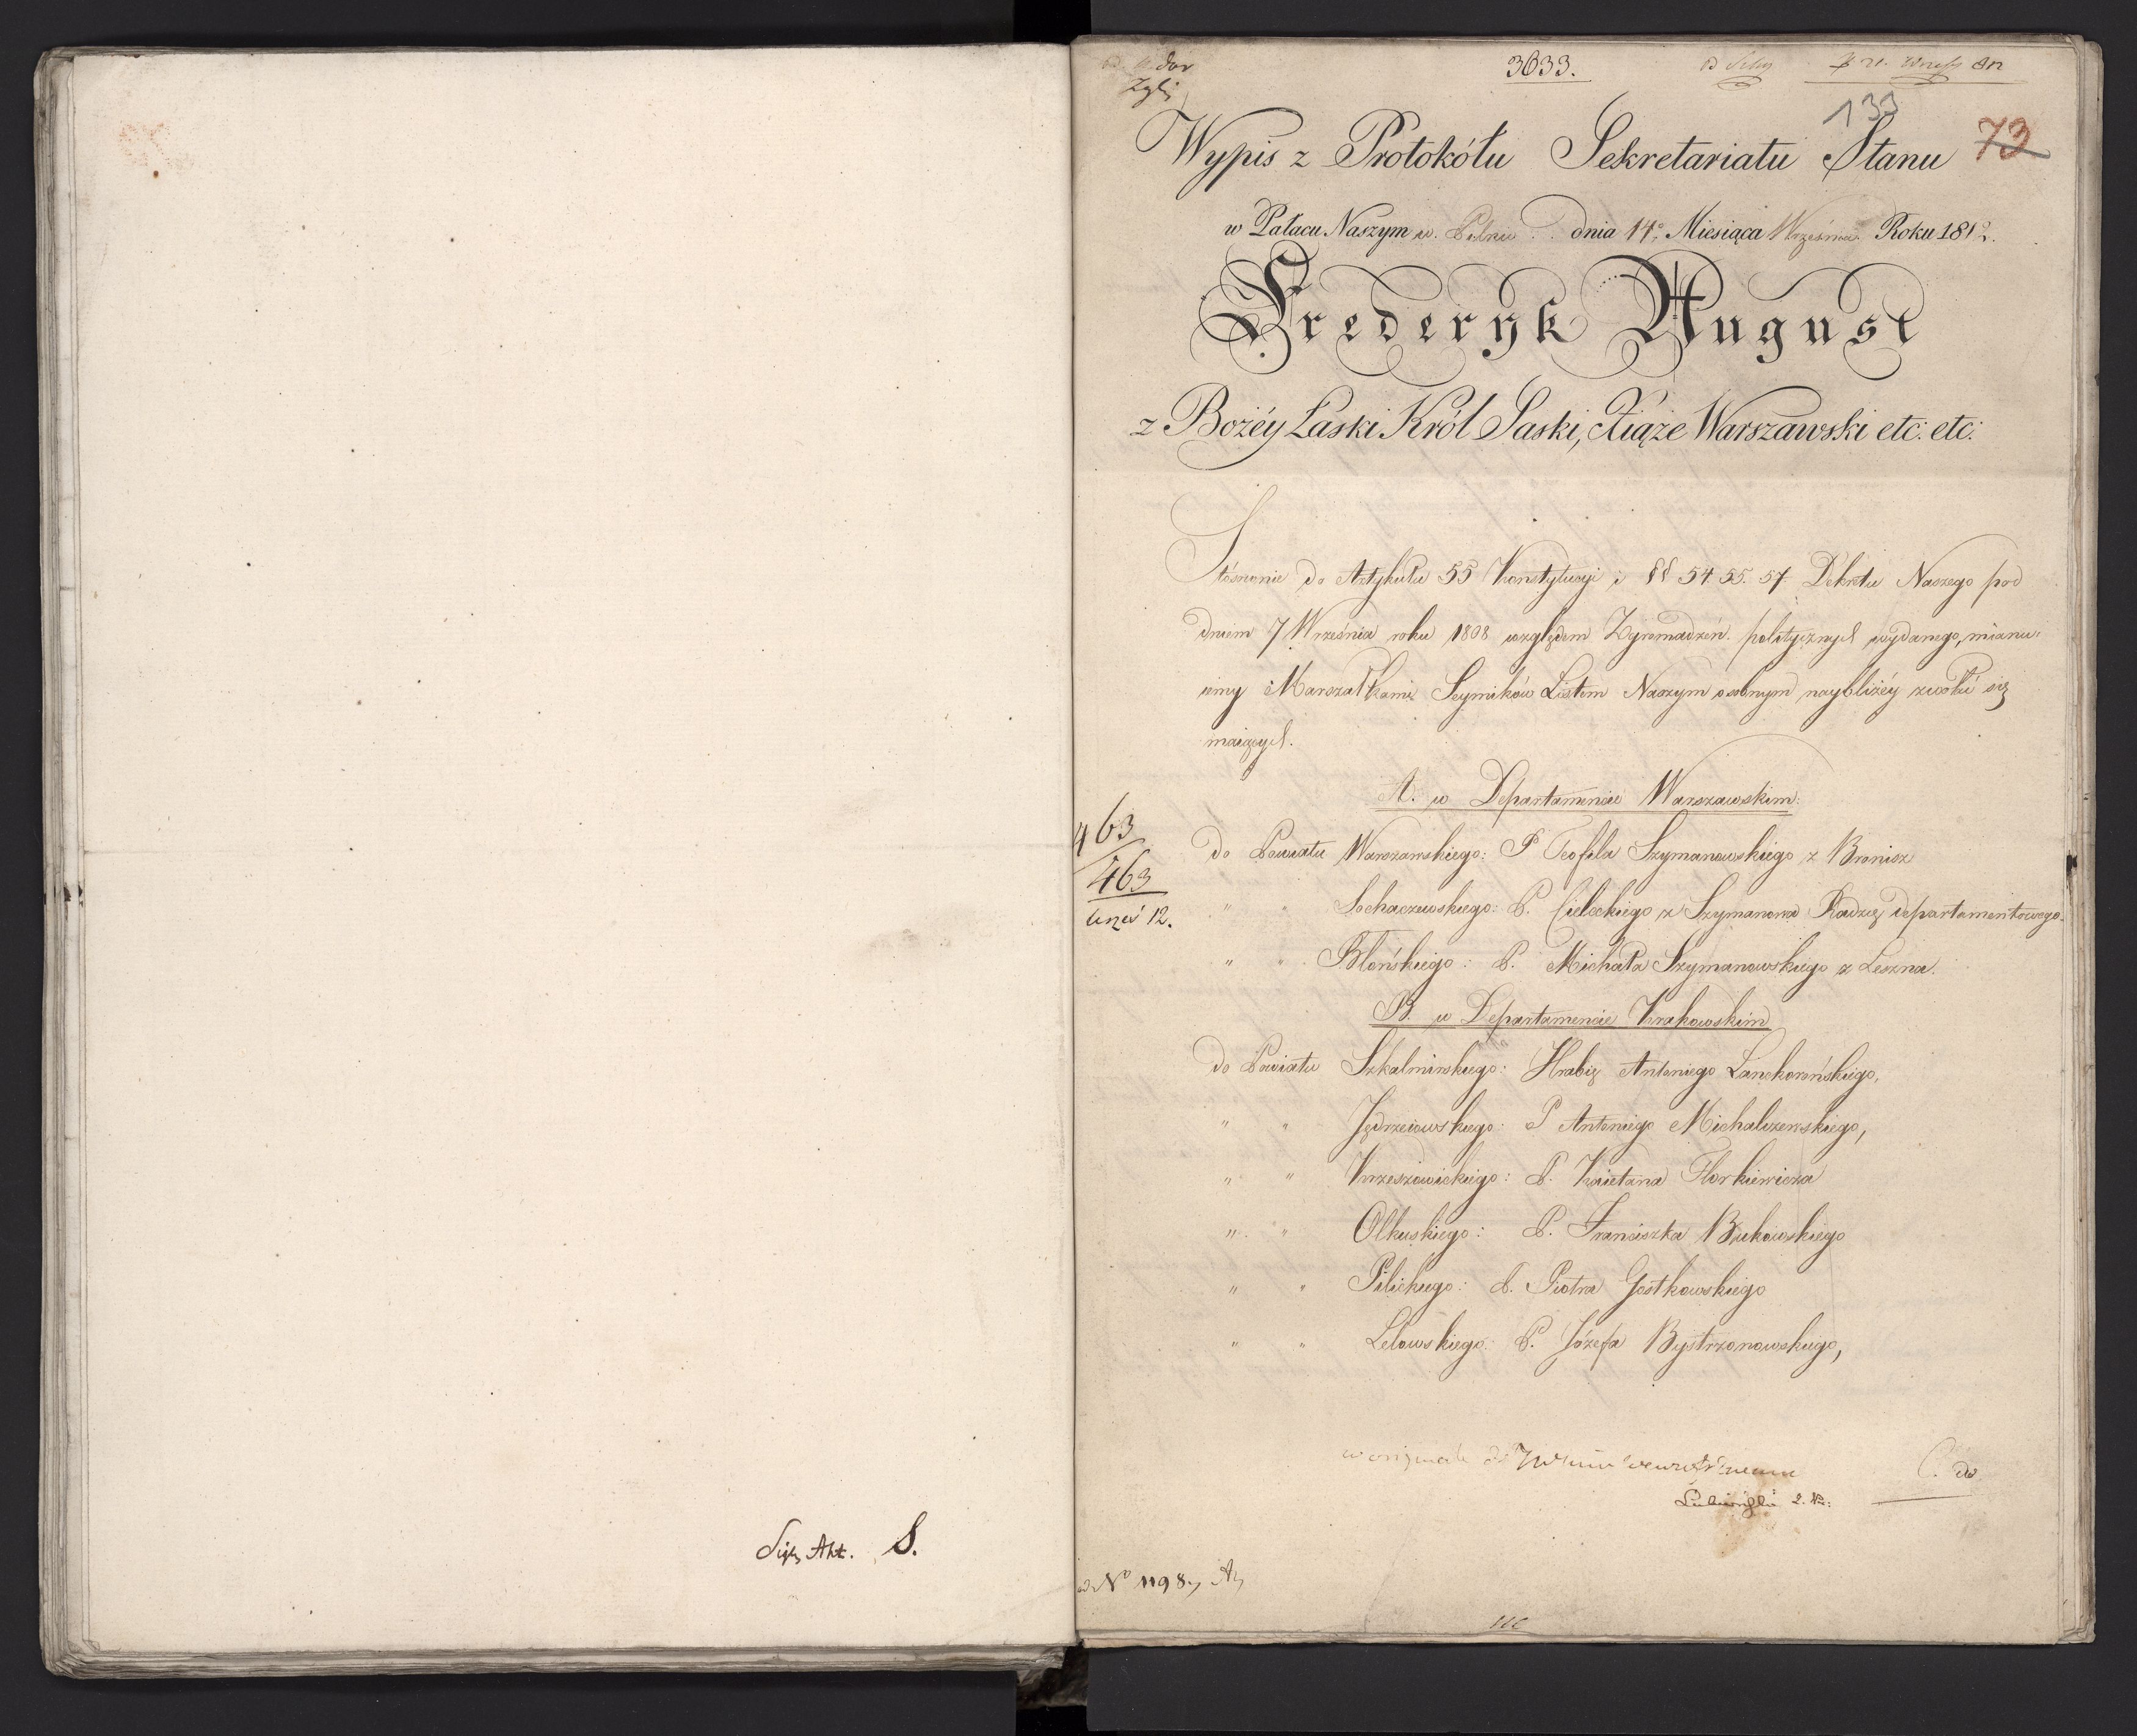 Sygn Akt. S.
3633.
133
73
Wypis z Protokółu Sekretariatu Stanu
w Pałacu Naszym w dnia 14º Miesiąca Września Roku 1812.
Frederyk August
z Bożéy Łaski Król Saski, Xiąże Warszawski etc: etc:
Stósownie do Artykułu 55 Konstytucyi i §§ 54. 55. 57. Dekretu Naszego pod
dniem 7 Września roku 1808 względem Zgromadzeń politycznych wydanego, mianu-
iemy Marszałkami Seymików Listem Naszym osobnym naybliżéy zwołać się
maiących.
A. w Departamencie Warszawskim:
463
463
do Powiatu Warszawskiego: P Teofila Szymanowskiego z Bronisz
" " Sochaczewskiego: P. Cieleckiego z Szymanowa Radzcę departamentowego.
12.
" " Błońskiego: P. Michała Szymanowskiego z Leszna.
B. w Departamencie Krakowskim
do Powiatu Szkalmirskiego: Hrabię Antoniego Lanckorońskiego,
" " Jędrzeiowskiego: P Antoniego Michalczewskiego,
" " Krzeszowickiego: P. Kaietana Florkiewicza
" " Olkuskiego: P. Franciszka Bukowskiego
" " Pilickiego: P. Piotra Gostkowskiego
" " Lelowskiego: P. Józefa Bystrzonowskiego,
C. do
ad Nº 1198.